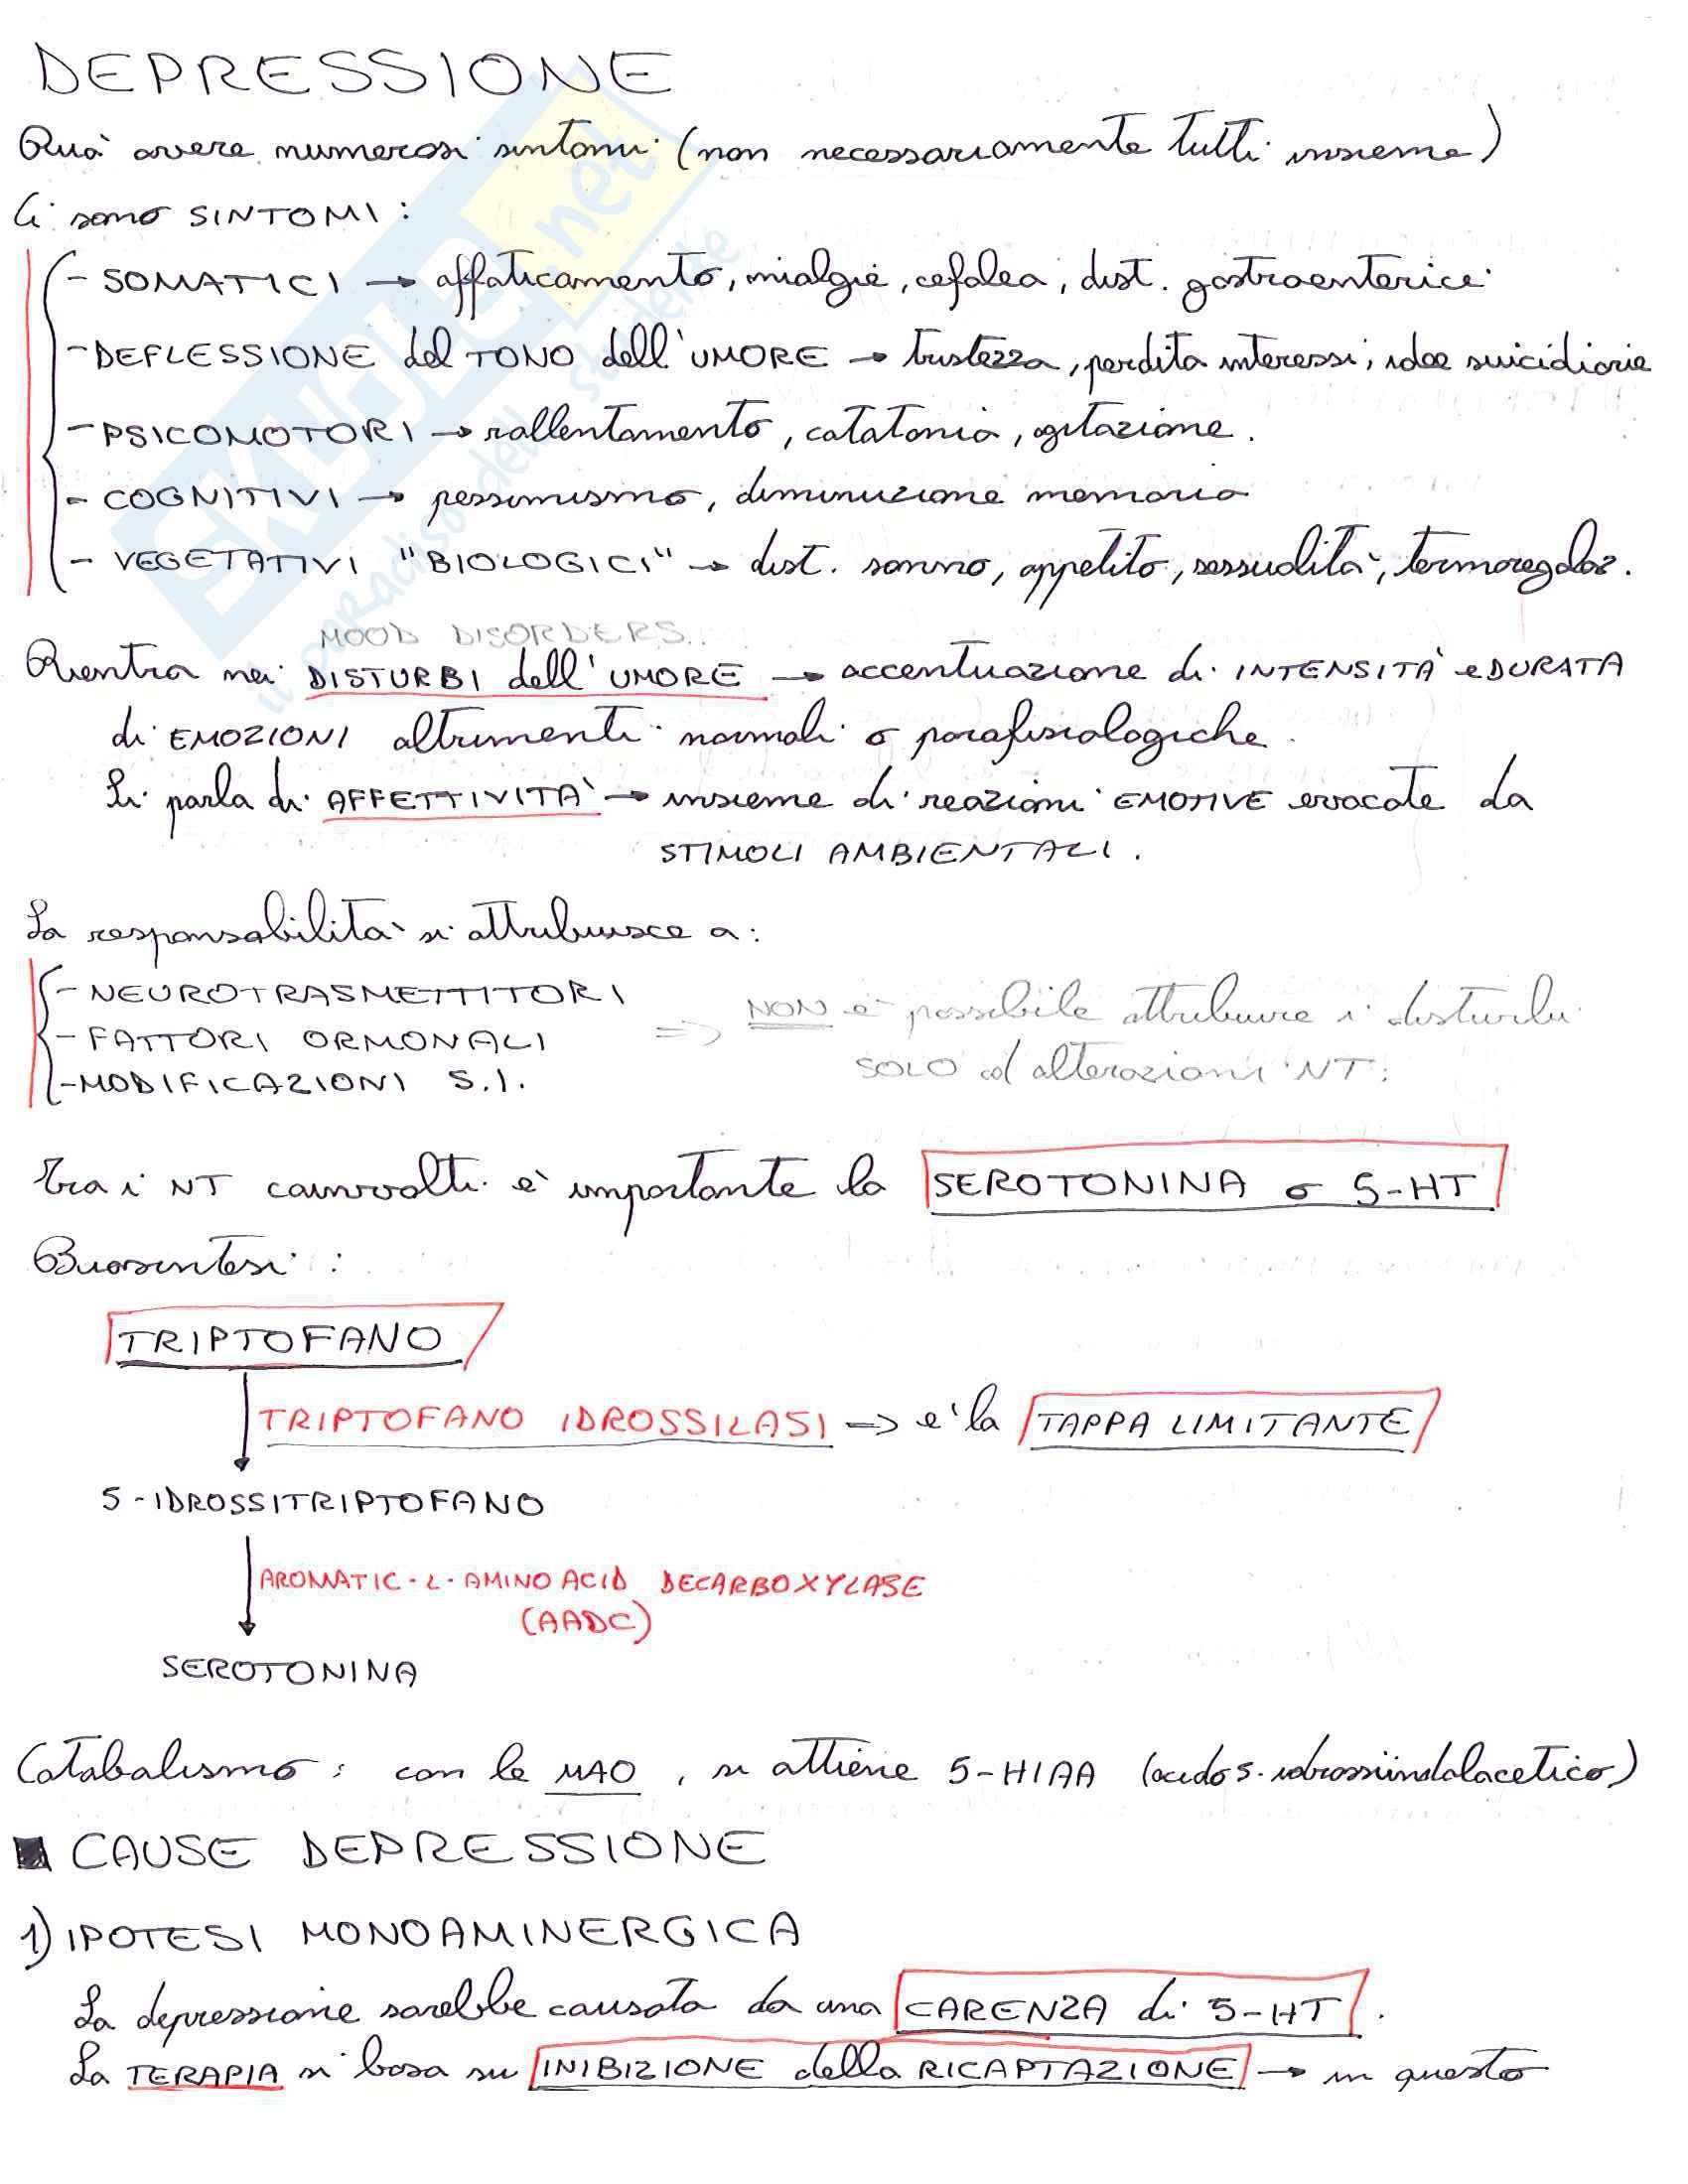 DEPRESSIONE
Può avere numerosi sintomi (non necessariamente tutti insieme)
Ci sono SINTOMI:
- SOMATICI → affaticamento, mialgie, cefalea, dist. gastroenterici
- DEFLESSIONE del TONO dell'UMORE → tristezza, perdita interessi, idee suicidiarie
- PSICOMOTORI → rallentamento, catatonia, agitazione.
- COGNITIVI → pessimismo, diminuzione memoria
- VEGETATIVI "BIOLOGICI" → dist. sonno, appetito, sessualità, termoregolaz.
MOOD DISORDERS..
Rientra nei DISTURBI dell'UMORE → accentuazione di INTENSITÀ e DURATA
di EMOZIONI altrimenti normali o parafisiologiche.
Si parla di AFFETTIVITA' → insieme di reazioni EMOTIVE evocate da
STIMOLI AMBIENTALI.
La responsabilità si attribuisce a:
- NEUROTRASMETTITORI
- FATTORI ORMONALI
- MODIFICAZIONI S.I.
=> NON è possibile attribuire i disturbi
SOLO ad alterazioni NT.
Tra i NT coinvolti è importante la SEROTONINA o 5-HT
Biosintesi:
TRIPTOFANO
TRIPTOFANO IDROSSILASI => e' la TAPPA LIMITANTE
5-IDROSSITRIPTOFANO
AROMATIC-L-AMINO ACID DECARBOXYLASE
(AADC)
SEROTONINA
Catabolismo: con le MAO, si ottiene 5-HIAA (acido 5-idrossiindolacetico)
■ CAUSE DEPRESSIONE
1) IPOTESI MONOAMINERGICA
La depressione sarebbe causata da una CARENZA di 5-HT.
La TERAPIA si basa su INIBIZIONE della RICAPTAZIONE → in questo
SKUOLA.net
il paradiso dello studente